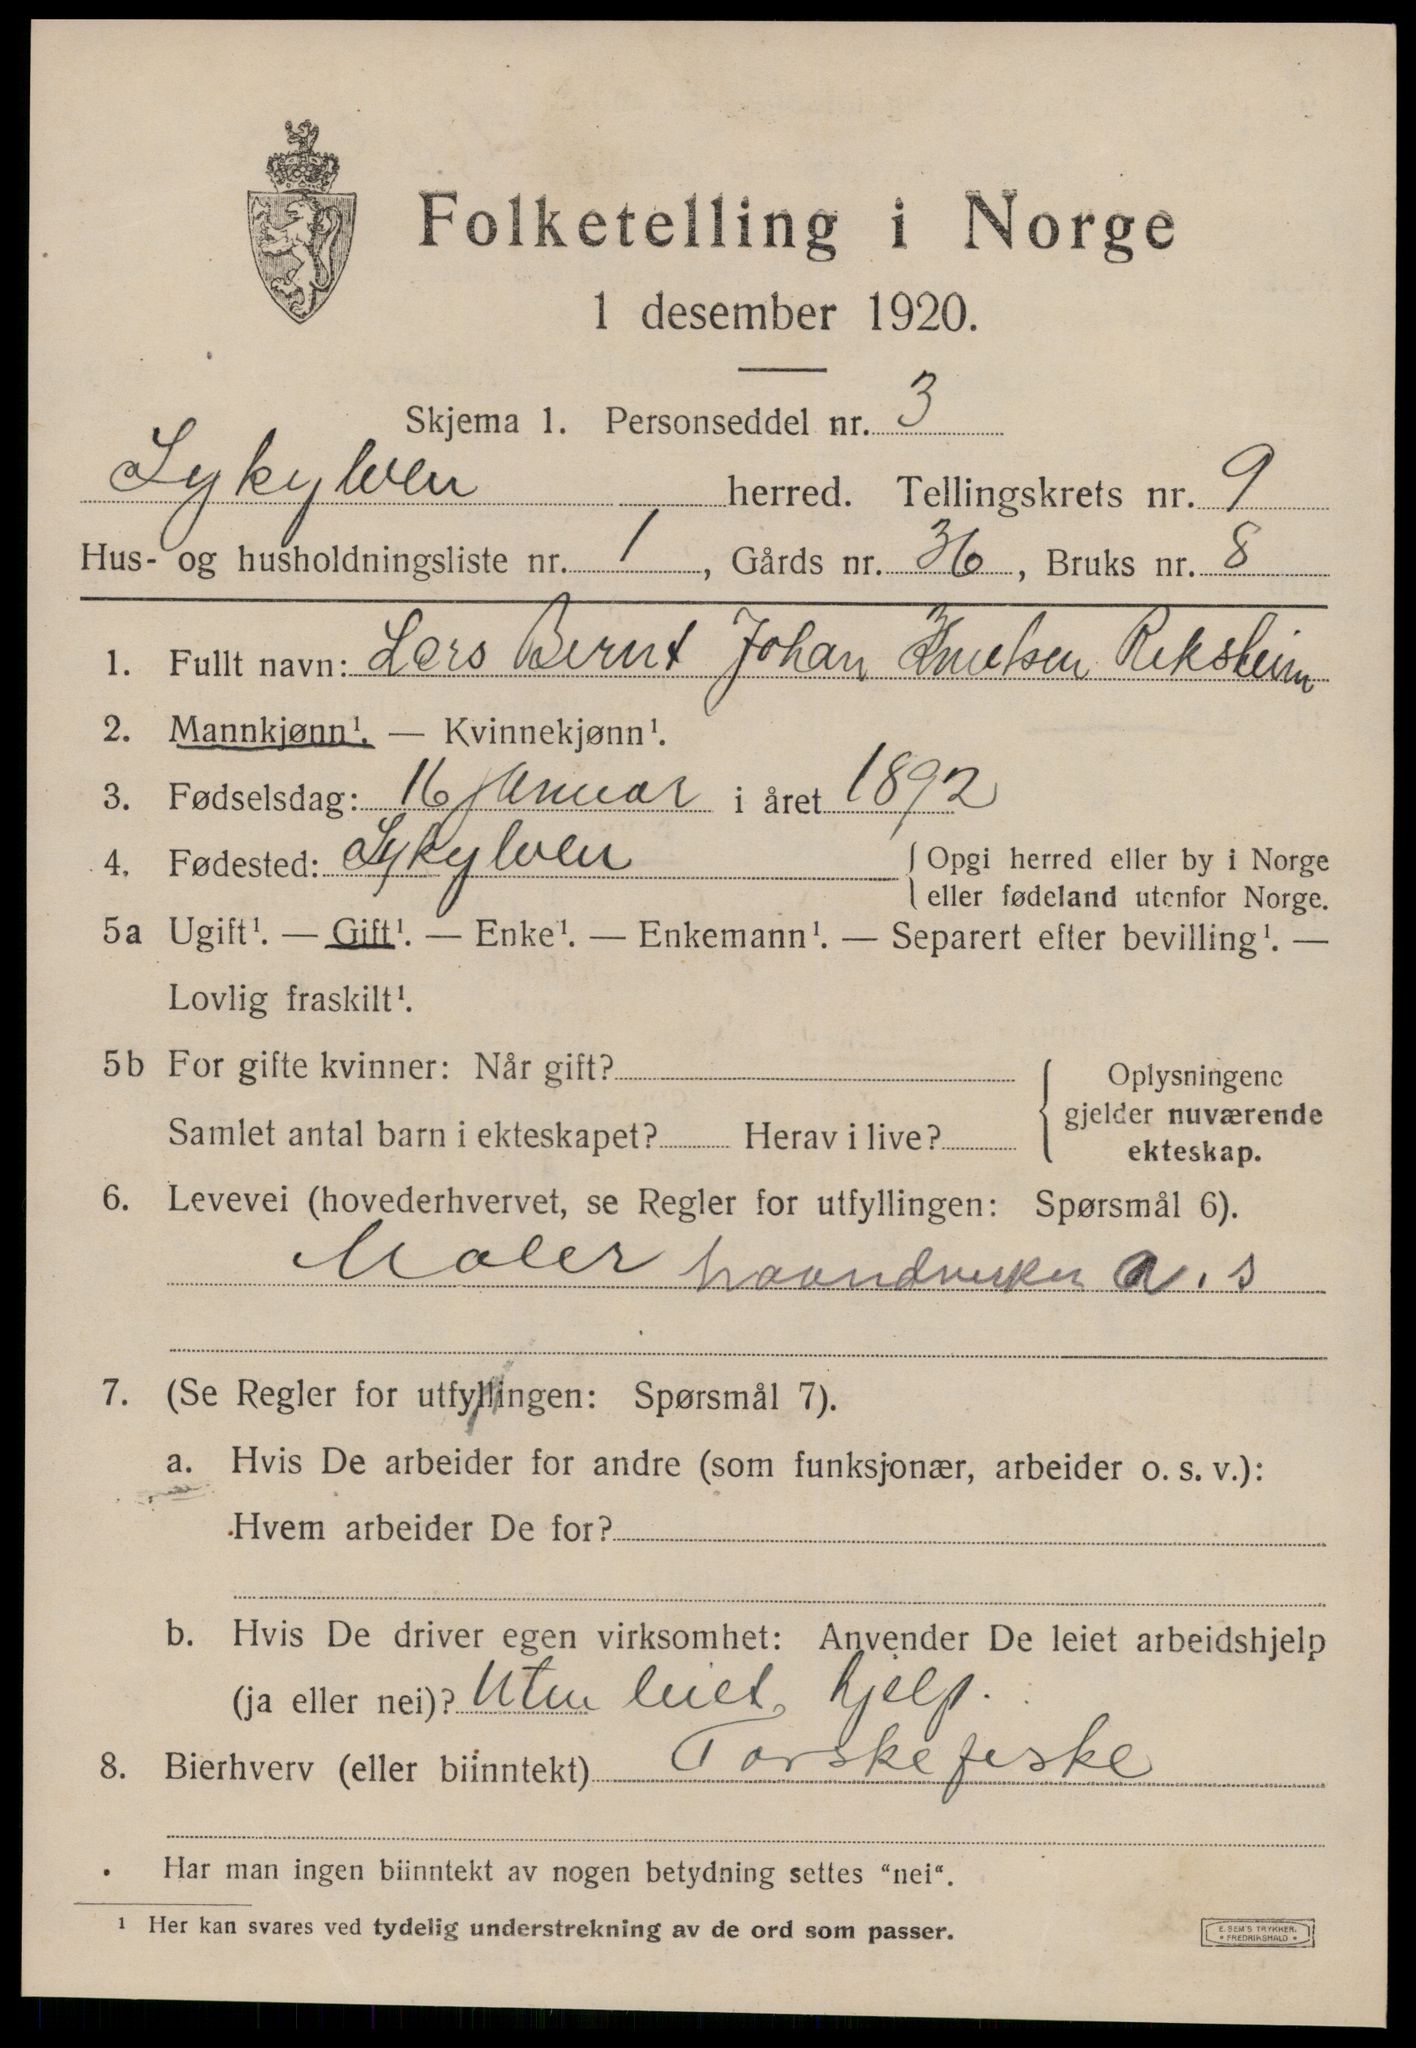 Folketelling i Norge
1 desember 1920.
Skjema 1. Personseddel nr. 3
Sykylven herred. Tellingskrets nr. 9
Hus- og husholdningsliste nr. 1, Gårds nr. 36, Bruks nr. 8
1. Fullt navn: Lars Bernt Johan Knutsen Reksheim
2. Mannkjønn¹. — Kvinnekjønn¹.
3. Fødselsdag: 16 januar i året 1892
4. Fødested: Sykylven { Opgi herred eller by i Norge
eller fødeland utenfor Norge.
5a Ugift¹. — Gift¹. — Enke¹. — Enkemann¹. — Separert efter bevilling¹. —
Lovlig fraskilt¹.
5b For gifte kvinner: Når gift?
Samlet antal barn i ekteskapet? Herav i live?
{ Oplysningene
gjelder nuværende
ekteskap.
6. Levevei (hovederhvervet, se Regler for utfyllingen: Spørsmål 6).
Maler haandverker a. s
7. (Se Regler for utfyllingen: Spørsmål 7).
a. Hvis De arbeider for andre (som funksjonær, arbeider o. s. v.):
Hvem arbeider De for?
b. Hvis De driver egen virksomhet: Anvender De leiet arbeidshjelp
(ja eller nei)? Uten leiet hjelp.
8. Bierhverv (eller biinntekt) Torskefiske
Har man ingen biinntekt av nogen betydning settes "nei".
¹ Her kan svares ved tydelig understrekning av de ord som passer.
E. SEM'S TRYKKER.
• FREDRIKSHALD •